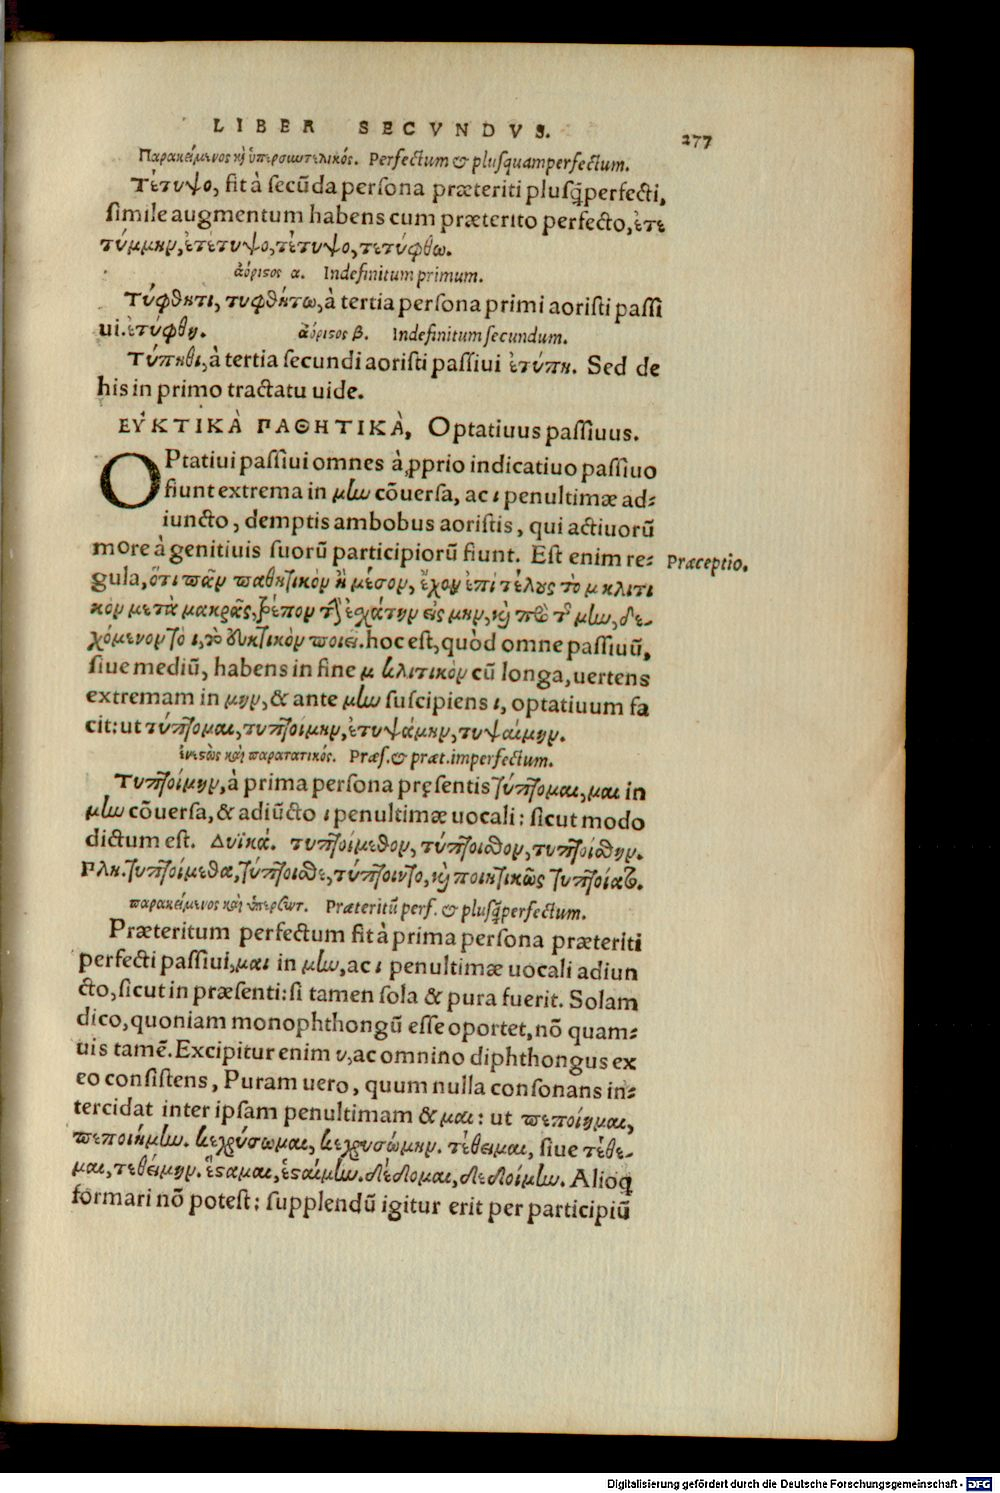 LIBER SECVNDVS. 277
Παρακείμενος κỳ ὑπερσωτελικός. Perfectum & plusquamperfectum.
Τέτυψο, fit à secūda persona præteriti plusq̃perfecti,
simile augmentum habens cum præterito perfecto, ἐτε
τύμμην, ἐτέτυψο, τέτυψο, τετύφθω.
ἀόριϛος α. Indefinitum primum.
Τύφθητι, τυφθήτω, à tertia persona primi aoristi passi
ui. ἐτύφθη. ἀόριϛος β. Indefinitum secundum.
Τύπηθι, à tertia secundi aoristi passiui ἐτύπη. Sed de
his in primo tractatu uide.
ΕΥ̓ΚΤΙΚᾺ ΠΑΘΗΤΙΚᾺ, Optatiuus passiuus.
OPtatiui passiui omnes à ꝓprio indicatiuo passiuo
fiunt extrema in μίω cōuersa, ac ι penultimæ ad-
iuncto, demptis ambobus aoristis, qui actiuorū
more à genitiuis suorū participiorū fiunt. Est enim re-
Præceptio.
gula, ὅτι πᾶν παθητικὸν ἢ μέσον, ἔχον ἐπὶ τέλους τὸ μ κλιτι
κὸν μετὰ μακρᾶς, τρέπον τὴν ἐσχάτην εἰς μην, κỳ πρὸ τοῦ μίω, δε-
χόμενον τὸ ι, τὸ εὐκτικὸν ποιεῖ. hoc est, quòd omne passiuū,
siue mediū, habens in fine μ κλιτικὸν cū longa, uertens
extremam in μην, & ante μίω suscipiens ι, optatiuum fa
cit: ut τύπτομαι, τυπτοίμην, ἐτυψάμην, τυψαίμην.
ἐνεϛὼς καὶ παρατατικός. Præs. & præt. imperfectum.
Τυπτοίμην, à prima persona pręsentis τύπτομαι, μαι in
μίω cōuersa, & adiūcto ι penultimæ uocali: sicut modo
dictum est. Δυϊκά. τυπτοίμεθον, τύπτοισθον, τυπτοίσθην.
Πλη. τυπτοίμεθα, τύπτοισθε, τύπτοιντο, κỳ ποιητικῶς τυπτοίατο.
παρακείμενος καὶ ὑπερσωτ. Præteritū perf. & plusq̃perfectum.
Præteritum perfectum fit à prima persona præteriti
perfecti passiui, μαι in μίω, ac ι penultimæ uocali adiun
cto, sicut in præsenti: si tamen sola & pura fuerit. Solam
dico, quoniam monophthongū esse oportet, nō quam-
uis tamē. Excipitur enim υ, ac omnino diphthongus ex
eo consistens, Puram uero, quum nulla consonans in-
tercidat inter ipsam penultimam & μαι: ut πεποίημαι,
πεποιήμίω. κεχρύσωμαι, κεχρυσώμην. τέθειμαι, siue τέθε-
μαι, τεθείμην. ἕϛαμαι, ἑϛαίμίω. δέδομαι, δεδοίμίω. Alioq̃
formari nō potest: supplendū igitur erit per participiū
Digitalisierung gefördert durch die Deutsche Forschungsgemeinschaft - DFG